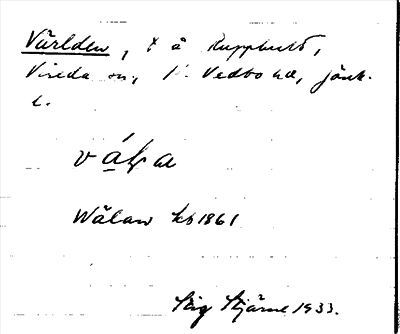 Världen, t å Rupphult,
Vireda sn, N. Vedbo hd, Jönk.
l.
Wålaw kb 1861
Stig Stjärne 1933.